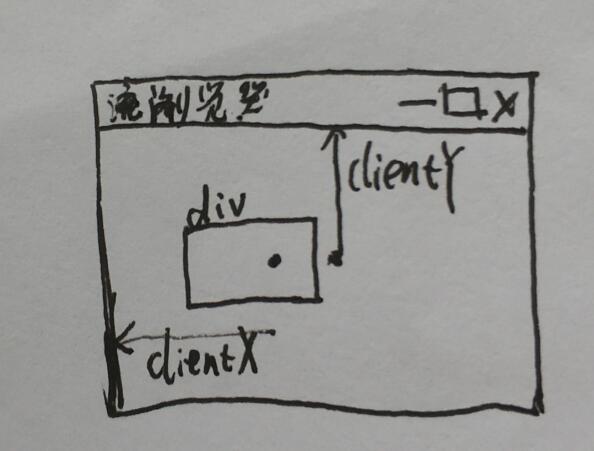 clientY
div
clientX